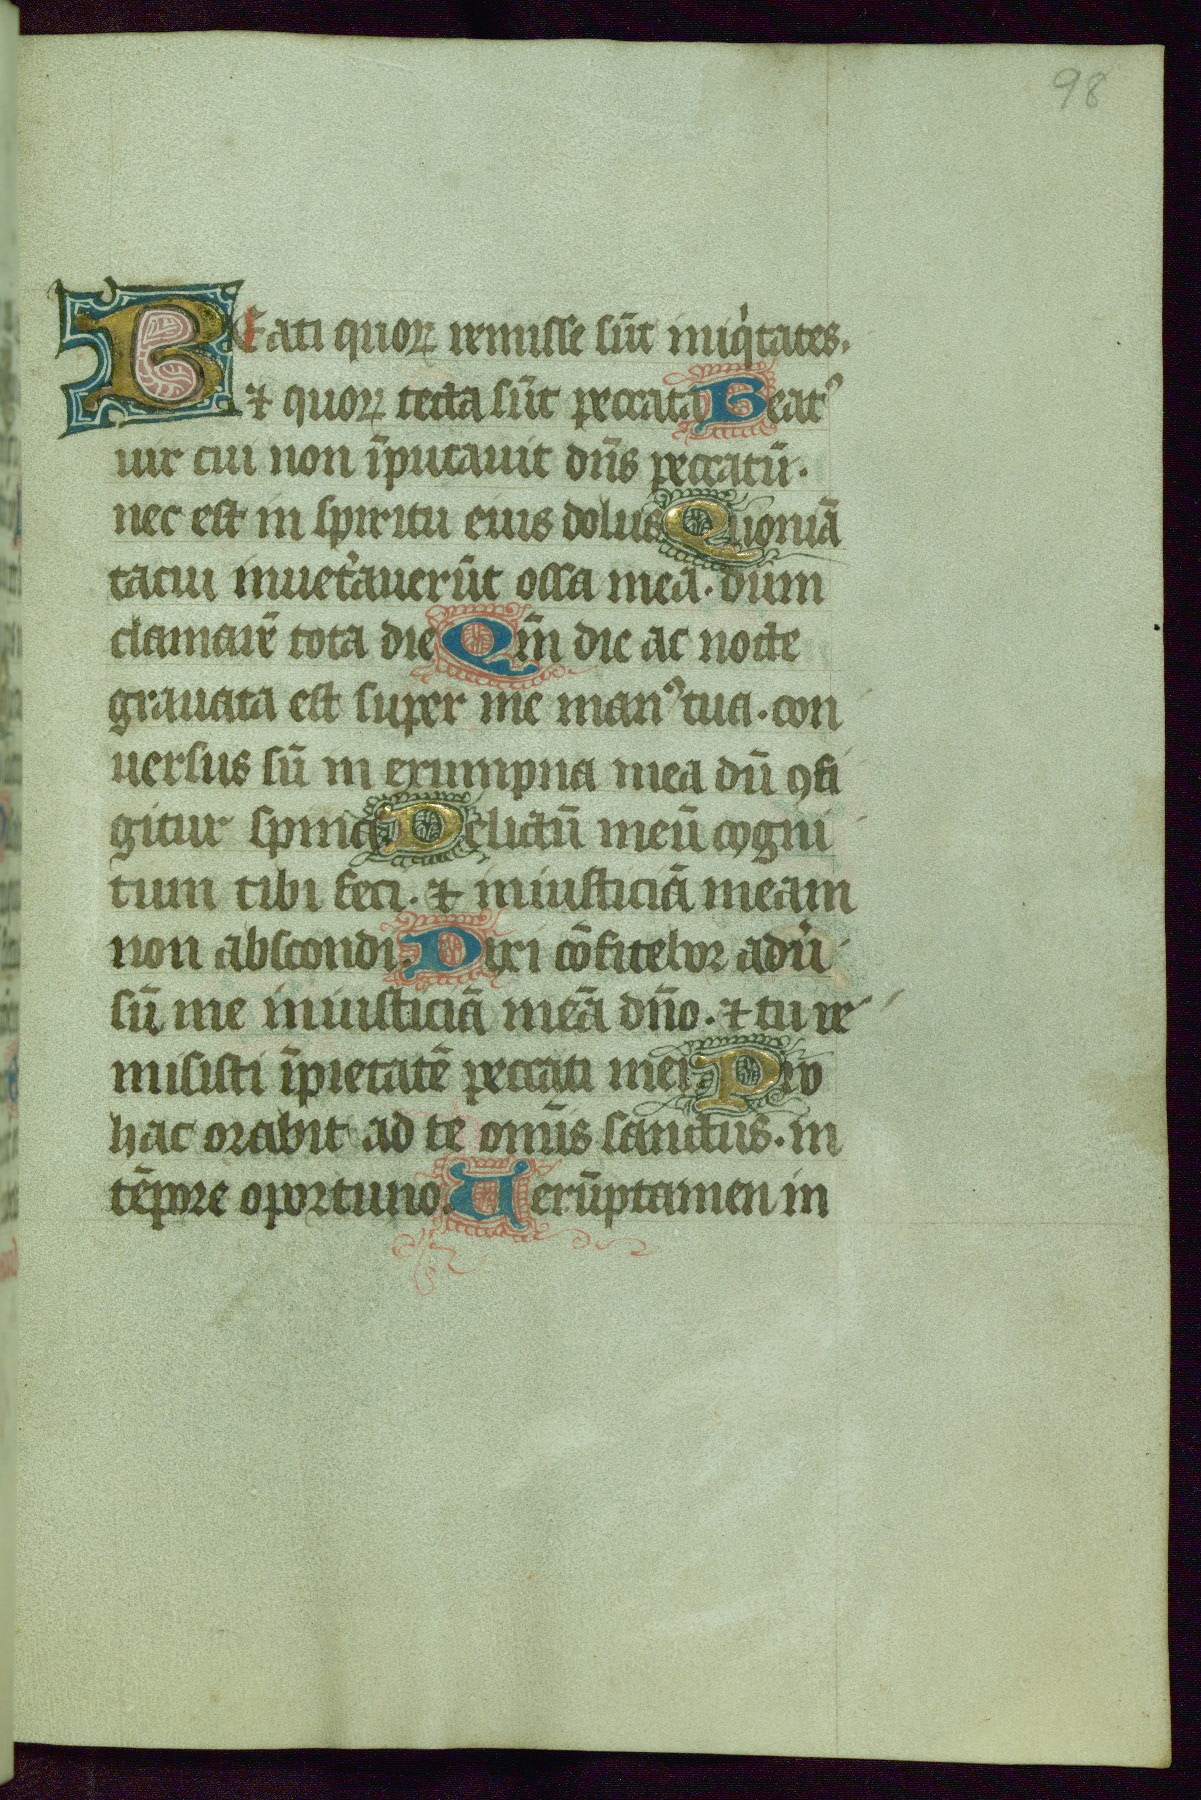 98
BEati quoꝝ remisse sūt iniqͥtates.
⁊ quoꝝ tecta sūt peccata Beatꝰ
uir cui non īputauit dn̄s peccatū.
nec est in spiritu eius dolus Quoniā
tacui inuet̓auerūt ossa mea. dum
clamarē tota die Qm̄ die ac nocte
grauata est super me manꝰ tua. con
uersus sū in erumpna mea dū ꝯfi
gitur spina. Delictū meū cogni
tum tibi feci. ⁊ iniusticiā meam
non abscondi. Dixi cōfitebor aduͥ
sū me iniusticiā meā dn̄o. ⁊ tu re
misisti īpietatē peccati mei. Pro
hac orabit ad te omīs sanctus. in
tēpore oportuno. Uerūptamen in